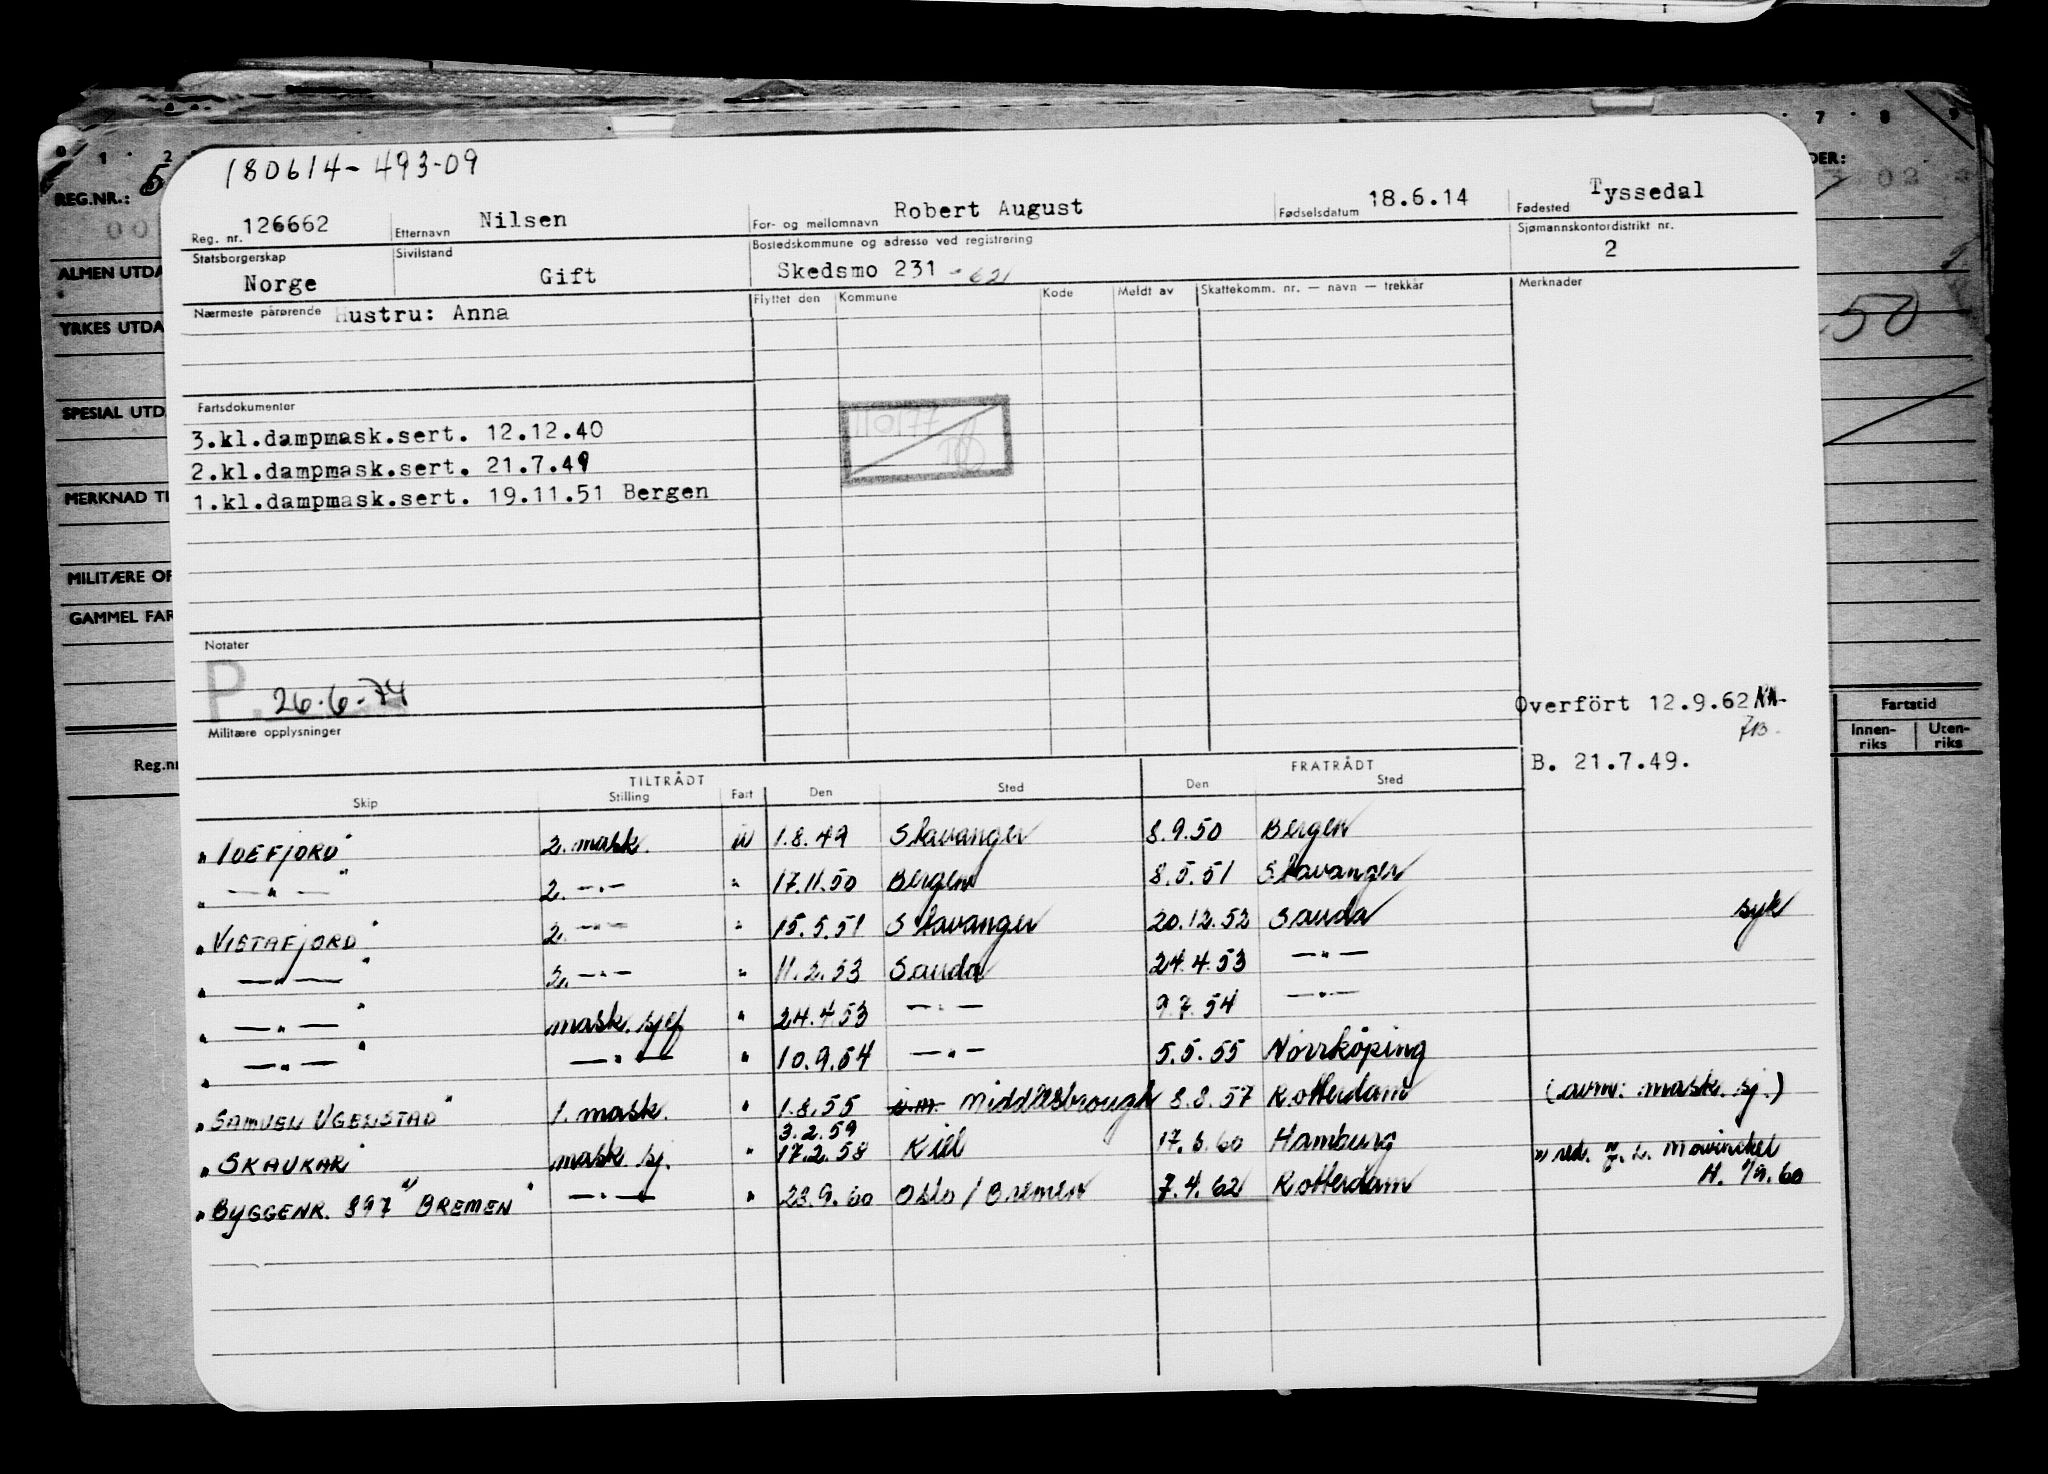 180614-493-09
0 1 2 7 8 9
REG.NR.: 5
Reg. nr. 126662 Etternavn Nilsen For- og mellomnavn Robert August Fødselsdatum 18.6.14 Fødested Tyssedal
Statsborgerskap Norge Sivilstand Gift Bostedskommune og adresse ved registrering Skedsmo 231 - 621 Sjømannskontordistrikt nr. 2
ALMEN UTDA
YRKES UTDA
50
Nærmeste pårørende Hustru: Anna Flyttet den Kommune Kode Meldt av Skattekomm. nr. — navn — trekkår Merknader
SPESIAL UTD
Fartsdokumenter
3.kl.dampmask.sert. 12.12.40
2.kl.dampmask.sert. 21.7.49
1.kl.dampmask.sert. 19.11.51 Bergen
110177
MERKNAD TI
MILITÆRE OF
GAMMEL FAR
Notater
P. 26.6.74
Overfört 12.9.62
Militære opplysninger
B. 21.7.49.
Fartstid
Innen-riks Uten-riks
Reg.nr
TILTRÅDT FRATRÅDT
Skip Stilling Fart Den Sted Den Sted
"IDEFJORD" 2. mask. u 1.8.49 Stavanger 8.9.50 Bergen
" —"— " 2. —"— " 17.11.50 Bergen 8.5.51 Stavanger
"VISTAFJORD" 2. —"— " 15.5.51 Stavanger 20.12.52 Sauda syk
" —"— " 2. —"— " 11.2.53 Sauda 24.4.53 —"—
" —"— " mask. sjef " 24.4.53 —"— 9.7.54 —"—
" —"— " —"— " 10.9.54 —"— 5.5.55 Norrköping
"SAMUEL UGELSTAD" 1. mask. " 1.8.55 Middlesbrough 8.8.57 Rotterdam (avm: mask. sj.)
3.2.59
"SKAUKAR" mask. sj. " 17.2.58 Kiel 17.6.60 Hamburg
"BYGGENR. 897 BREMEN" —"— " 23.9.60 Oslo / Bremen 7.4.62 Rotterdam
Mowinckel